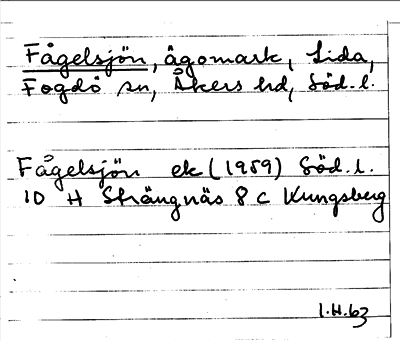 Fågelsjön, ägomark, Lida,
Fogdö sn, Åkers hd, Söd.l.
Fågelsjön ek (1959) Söd.l.
10 H Strängnäs 8 c Kungsberg
I.H.63